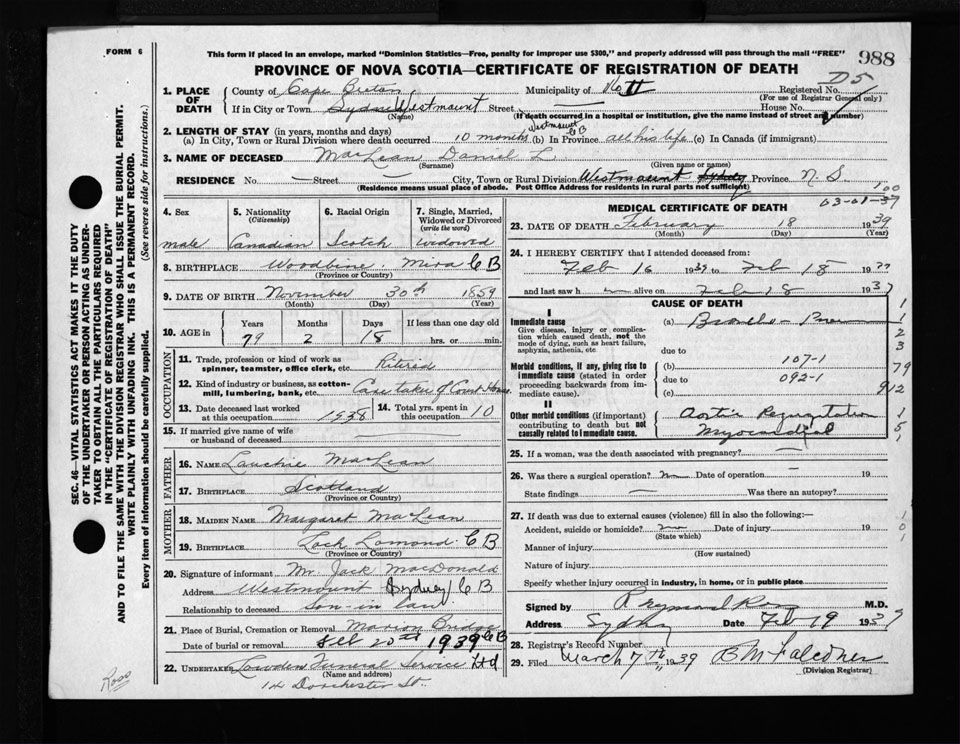 FORM 6
This form if placed in an envelope, marked "Dominion Statistics—Free, penalty for improper use $300," and properly addressed will pass through the mail "FREE"
988
PROVINCE OF NOVA SCOTIA—CERTIFICATE OF REGISTRATION OF DEATH
D5
1. PLACE OF DEATH
County of Cape Breton Municipality of Registered No.
(For use of Registrar General only)
If in City or Town Sydney Westmount Street — House No.
(Name) (If death occurred in a hospital or institution, give the name instead of street and number)
2. LENGTH OF STAY (in years, months and days)
(a) In City, Town or Rural Division where death occurred 10 months Westmount CB (b) In Province all his life (c) In Canada (if immigrant)
3. NAME OF DECEASED MacLean Daniel L
(Surname) (Given name or names)
RESIDENCE No — Street — City, Town or Rural Division Westmount Sydney Province N. S.
(Residence means usual place of abode. Post Office Address for residents in rural parts not sufficient)
4. Sex male
5. Nationality (Citizenship) Canadian
6. Racial Origin Scotch
7. Single, Married, Widowed or Divorced (write the word) widowed
8. BIRTHPLACE Woodbine Mira CB
(Province or Country)
9. DATE OF BIRTH November 30th 1859
(Month) (Day) (Year)
10. AGE in Years Months Days If less than one day
79 2 18 hrs. or min.
OCCUPATION
11. Trade, profession or kind of work as spinner, teamster, office clerk, etc. Retired
12. Kind of industry or business, as cotton-mill, lumbering, bank, etc. Caretaker of Court House
13. Date deceased last worked at this occupation 1938
14. Total yrs. spent in this occupation 10
15. If married give name of wife or husband of deceased —
FATHER
16. NAME Lauchie MacLean
17. BIRTHPLACE Scotland
(Province or Country)
MOTHER
18. MAIDEN NAME Margaret MacLean
19. BIRTHPLACE Loch Lomond CB
(Province or Country)
20. Signature of informant Mr Jack MacDonald
Address Westmount Sydney CB
Relationship to deceased son-in law
21. Place of Burial, Cremation or Removal Marion Bridge CB
Date of burial or removal Feb 20th 1939
22. UNDERTAKER Lowden Funeral Service Ltd
(Name and address)
14 Dorchester St.
MEDICAL CERTIFICATE OF DEATH
23. DATE OF DEATH February 18 1939
(Month) (Day) (Year)
24. I HEREBY CERTIFY that I attended deceased from:
Feb 16 1939 to Feb 18 19
and last saw h alive on Feb 18 193
CAUSE OF DEATH
I
Immediate cause
Give disease, injury or complication which caused death, not the mode of dying, such as heart failure, asphyxia, asthenia, etc
(a) Broncho-
due to
Morbid conditions, if any, giving rise to immediate cause (stated in order proceeding backwards from immediate cause).
(b) 107-1
due to 092-1
(c)
II
Other morbid conditions (if important) contributing to death but not causally related to immediate cause.
Aortic Regurgitation
Myocardial
25. If a woman, was the death associated with pregnancy? —
26. Was there a surgical operation? no Date of operation — 19
State findings — Was there an autopsy?
27. If death was due to external causes (violence) fill in also the following:—
Accident, suicide or homicide? no Date of injury 19
(State which)
Manner of injury
(How sustained)
Nature of injury
Specify whether injury occurred in industry, in home, or in public place
Signed by M.D.
Address Sydney Date Feb 19 193
28. Registrar's Record Number
29. Filed March 7th, 1939 B M Falconer
(Division Registrar)
SEC. 46—VITAL STATISTICS ACT MAKES IT THE DUTY OF THE UNDERTAKER OR PERSON ACTING AS UNDERTAKER TO OBTAIN ALL THE PARTICULARS REQUIRED IN THE "CERTIFICATE OF REGISTRATION OF DEATH" AND TO FILE THE SAME WITH THE DIVISION REGISTRAR WHO SHALL ISSUE THE BURIAL PERMIT.
WRITE PLAINLY WITH UNFADING INK. THIS IS A PERMANENT RECORD.
Every item of information should be carefully supplied. (See reverse side for instructions.)
Ross